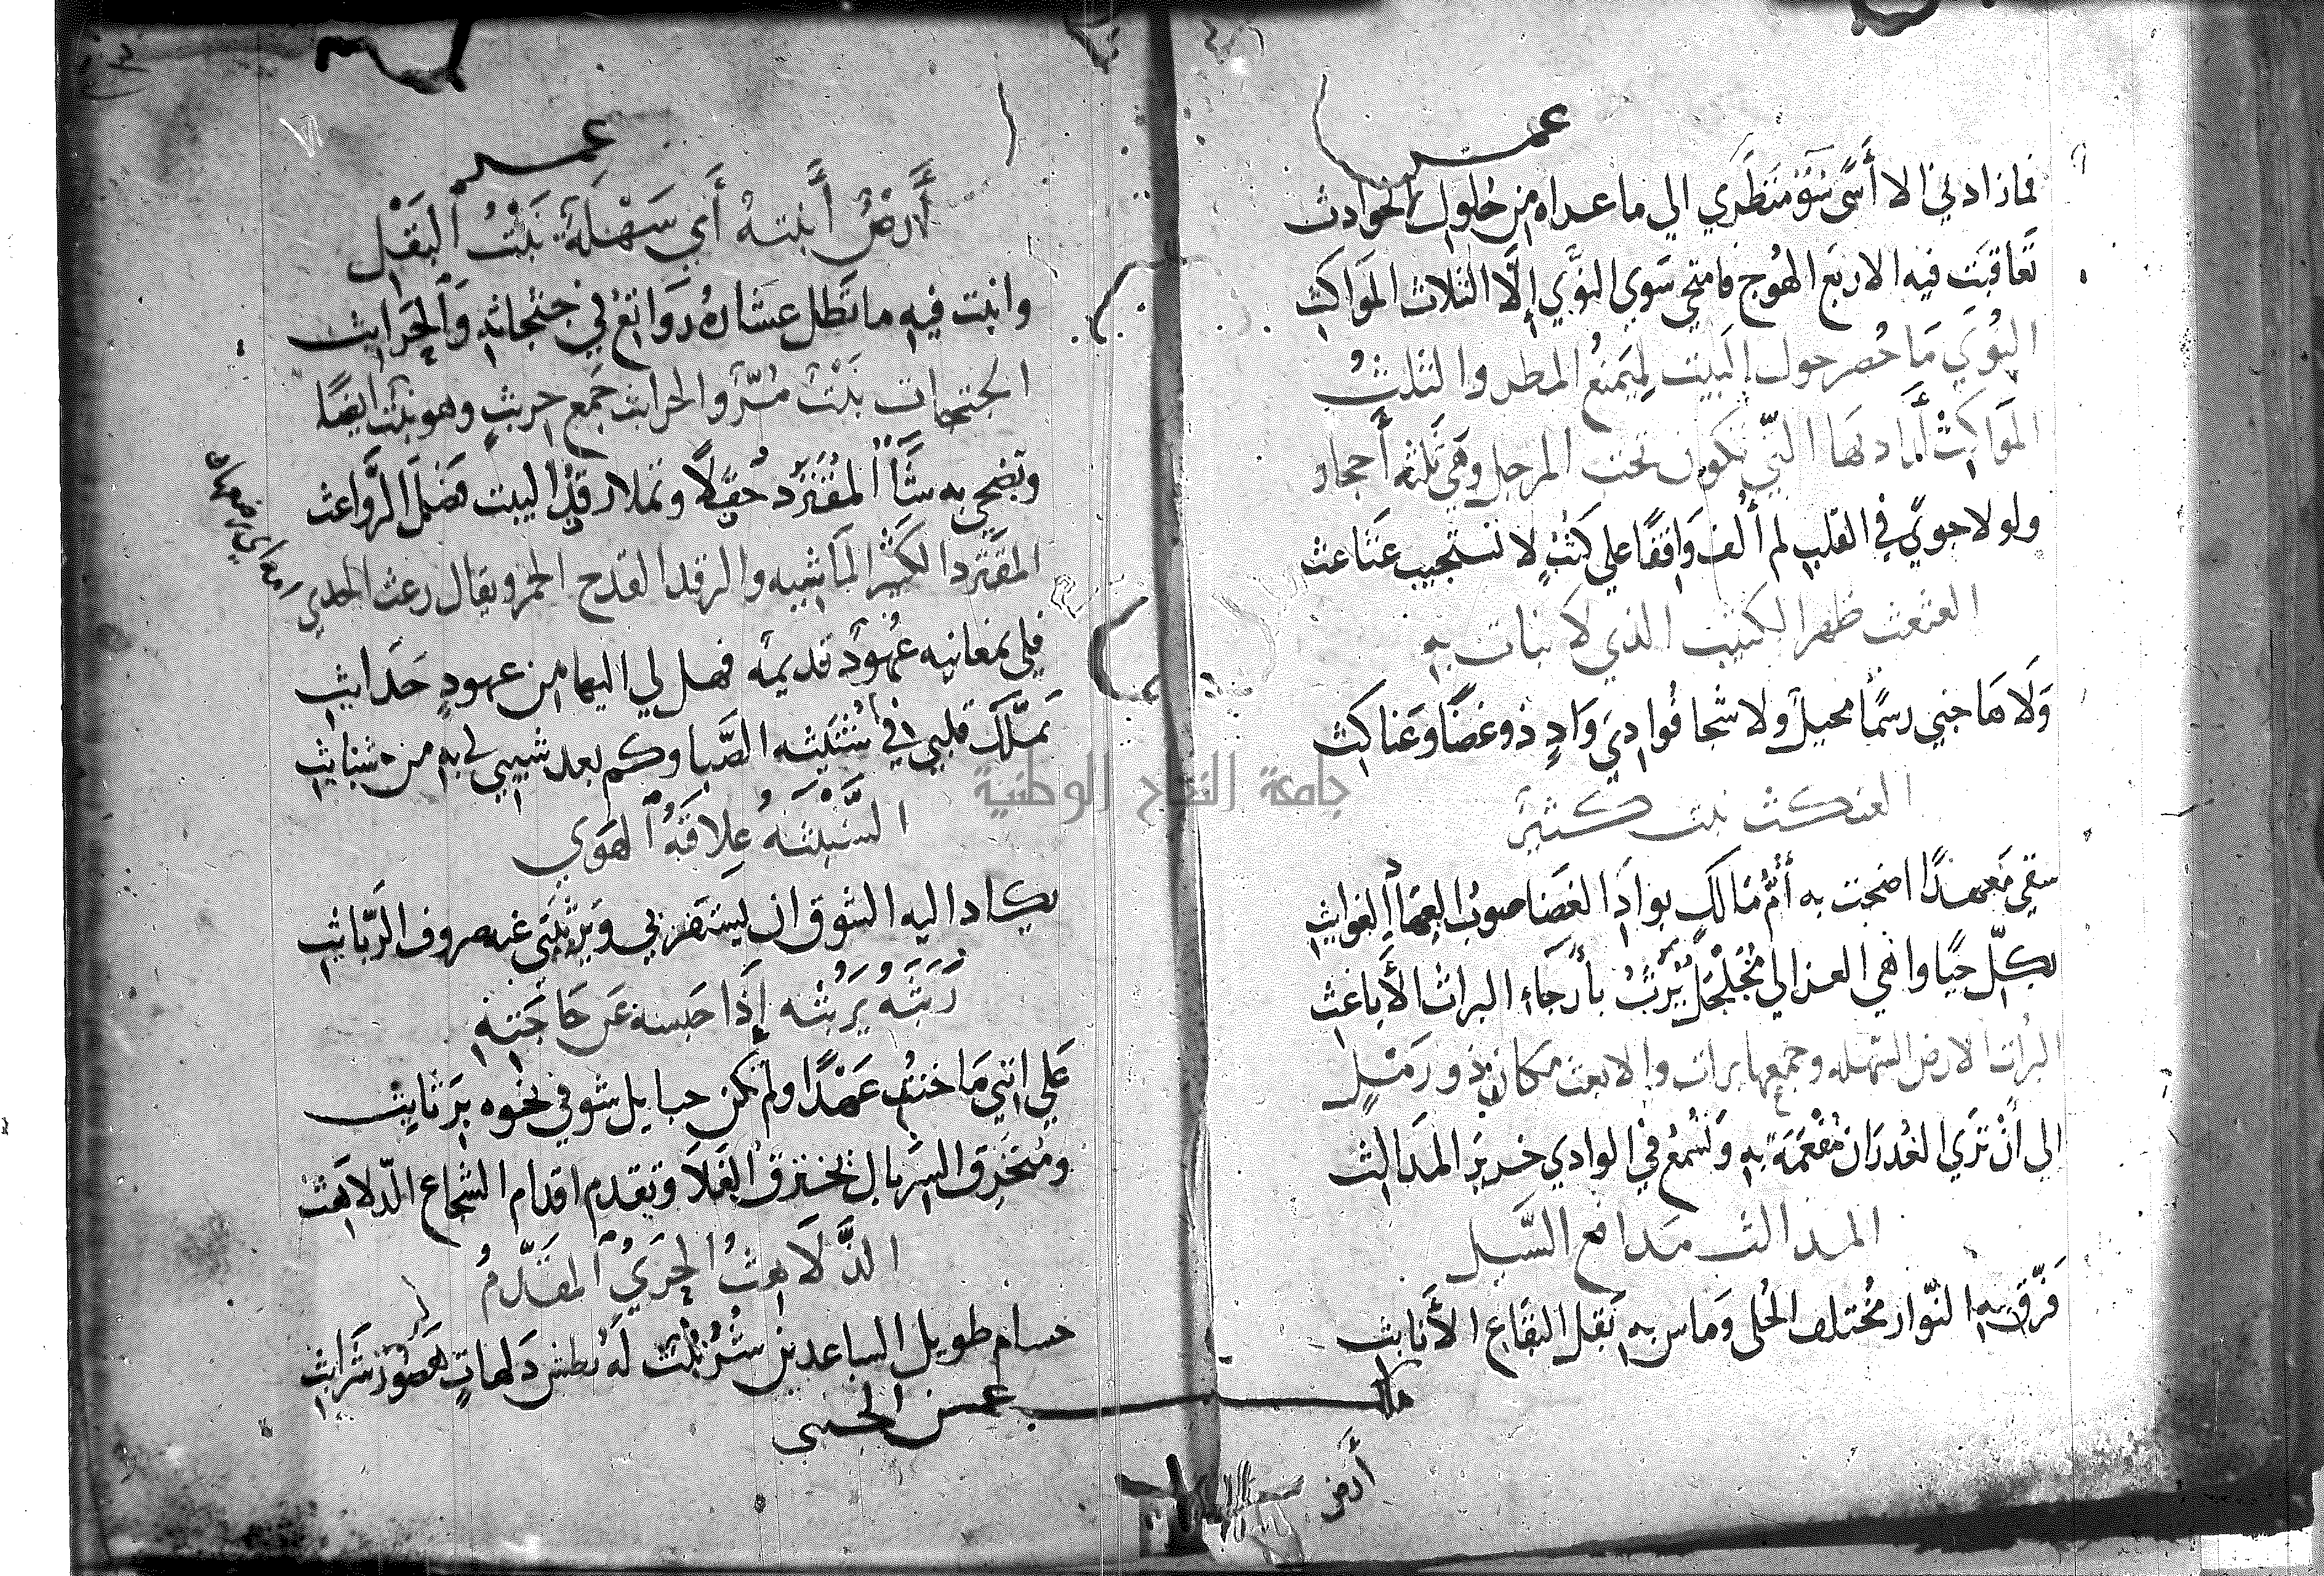 عمر
فما زادني الا أسًى سَوّ منظَري الي ما عداه من حُلول الحوادث
تَعاقبَت فيه الاربَع الهُوج فامتحي سَوي النؤْي إلَّا الثلاث المَوَاكِثِ
النُؤي مَا حُضر حول البَيت لِيَمنعُ المطر والثلثُ
المَواكثُ أرادَ بهَا التّي تكون تحت المرجل وهي ثلثه أحجار
ولو لا جويً في القلبِ لم أُلف وَاقفًا علي كثُبٍ لا تستجيب عَثَاعث
العثعث ظهر الكثيب الذي لا نبات بهِ
وَلَا هَاجني رسمًا محيلً ولا شجا فُوادِيَ وَادٍ ذو غضًا وعَناكث
العنكث نبت كثير
سقي مَعهدًا اضحت به أُمّ مَالكٍ بوادِ الغَضَا صوبُ العِهَادِ الغوايثِ
بكلّ حيًا واهي العزالي مُجَلْجَل يُرّثُ بأرجَاءِ البراث الأباغث
البُراث الارض السَّهله وجمعها براث والابغث مكان ذو رَمْلٍ
الي أنْ تَري الغُدرَان مُفْعَمَةً بهِ وَتَسْمَعُ في الوادي خرير المدالث
المدالث مَدافع السَّيل
فَرّق به النّوار مُختلف الحُلى وَماس به بَقل البقَاع الأنابث
أرض
عمر
أَرضُ أَنبتهُ أَي سَهْلَةُ نَبْتُ البَقْل
وانبت فيهِ ما تَظل عشَارهُ رَوَاتعُ في جثجاثهِ وَالحَرَابِث
الجثجاث نَبْتُ مُرّ والحرابث جَمع حربثٍ وهو نَبْت ايضًا
وتضحي به شَاَّ المُقترِد حُفَّلاً وتملا رفدَ البيت فَضْلَ الرَّواعث
المقترد الكثير الماشيه والرفد القدح الحمر ويقال رعث الجدي
امه اي رضعها
فلي بمغانيه عُهودٌ قديمه فهل لي اليها من عهودٍ حَدَايثِ
تمَلَّك قلبي في شنبثه الصّبا وكم بعد شيبي لي به من شنابِثِ
الشَّنبْثهُ عِلاقَهُ الهَوَي
يكاد اليه الشوق ان يستفزني وَيَرْبثني عنه صروف الرّبايثِ
رَبَثَهُ يَرْبثه إذَا حَبسه عَن حَاجَتهِ
عَلي انني مَا خنتُ عَهْدًا ولم تكن حبايل شوقي نحوه بِرَثَايث
ومُنخرِق السِربال يَخترق الفَلَا ويقدم اقدام الشجاع الدّلاهَث
الدَّلَاهثُ الجَرَيُ المقَدّمُ
حسام طويل الساعدين شَرَنْبَث لَه بَطش دَلهاثٍ هَصُور شَرابثِ